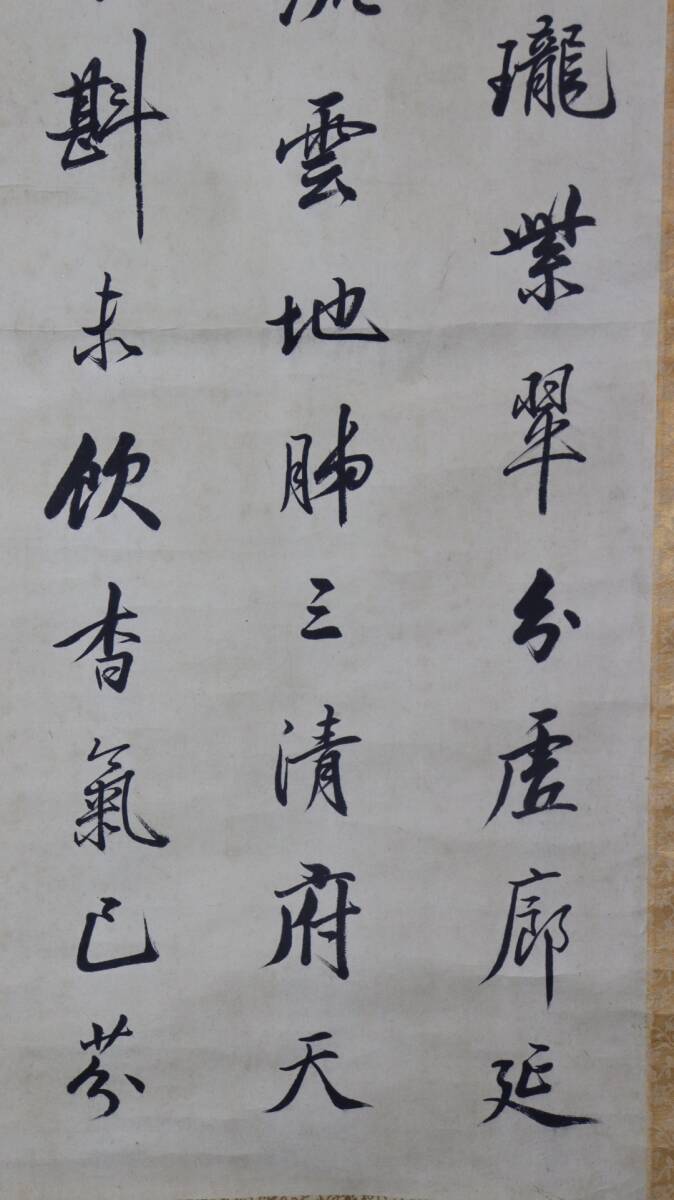 瓏紫翠分虛廊延
流雲地肺三清府天
斟未飲香氣已芬